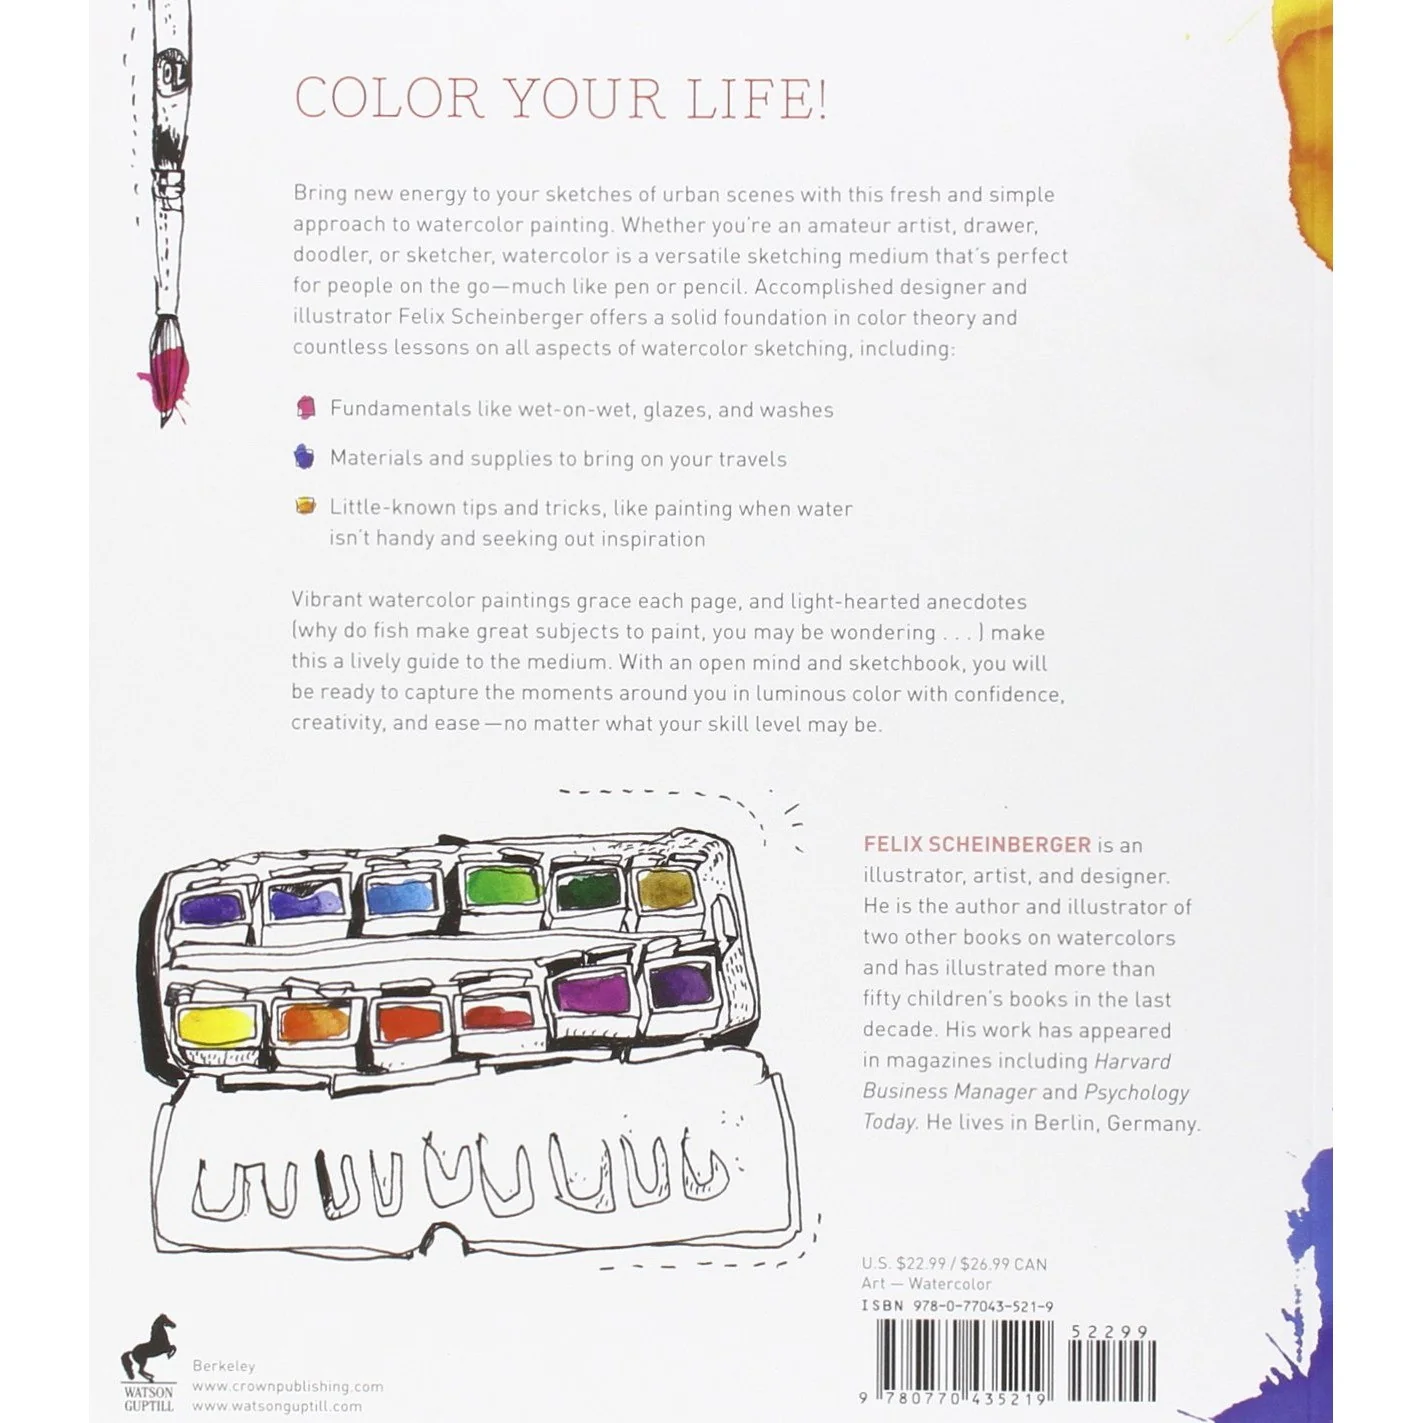 OZ
COLOR YOUR LIFE!
Bring new energy to your sketches of urban scenes with this fresh and simple
approach to watercolor painting. Whether you're an amateur artist, drawer,
doodler, or sketcher, watercolor is a versatile sketching medium that's perfect
for people on the go—much like pen or pencil. Accomplished designer and
illustrator Felix Scheinberger offers a solid foundation in color theory and
countless lessons on all aspects of watercolor sketching, including:
Fundamentals like wet-on-wet, glazes, and washes
Materials and supplies to bring on your travels
Little-known tips and tricks, like painting when water
isn't handy and seeking out inspiration
Vibrant watercolor paintings grace each page, and light-hearted anecdotes
(why do fish make great subjects to paint, you may be wondering . . . ) make
this a lively guide to the medium. With an open mind and sketchbook, you will
be ready to capture the moments around you in luminous color with confidence,
creativity, and ease—no matter what your skill level may be.
FELIX SCHEINBERGER is an
illustrator, artist, and designer.
He is the author and illustrator of
two other books on watercolors
and has illustrated more than
fifty children's books in the last
decade. His work has appeared
in magazines including Harvard
Business Manager and Psychology
Today. He lives in Berlin, Germany.
U.S. $22.99 / $26.99 CAN
Art — Watercolor
ISBN 978-0-77043-521-9
52299
9 780770 435219
WATSON
GUPTILL
Berkeley
www.crownpublishing.com
www.watsonguptill.com